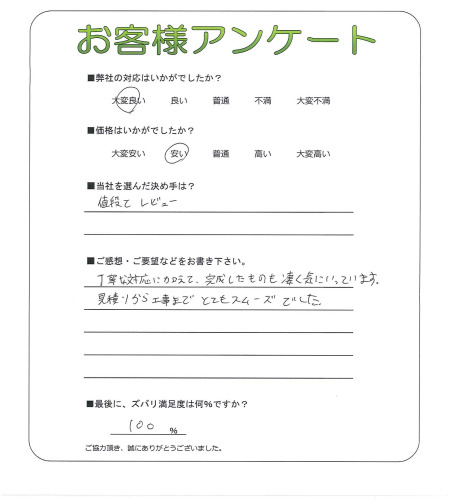 お客様アンケート
■弊社の対応はいかがでしたか？
大変良い 良い 普通 不満 大変不満
■価格はいかがでしたか？
大変安い 安い 普通 高い 大変高い
■当社を選んだ決め手は？
値段と レビュー
■ご感想・ご要望などをお書き下さい。
丁寧な対応に加えて、完成したものも凄く気にいっています。
見積りから工事まで とてもスムーズ でした。
■最後に、ズバリ満足度は何%ですか？
100 %
ご協力頂き、誠にありがとうございました。